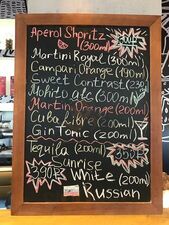 Aperol Shpritz
(300ml)
Martini Royal (300ml)
Campari Orange (190ml)
Sweet Contrast (230ml)
Mohito alc (300ml)
Martini Orange (200ml)
Cuba Libre (200ml)
Gin Tonic (200ml)
350₽
Tequila (200ml)
Sunrise
390₽
White (200ml)
Russian